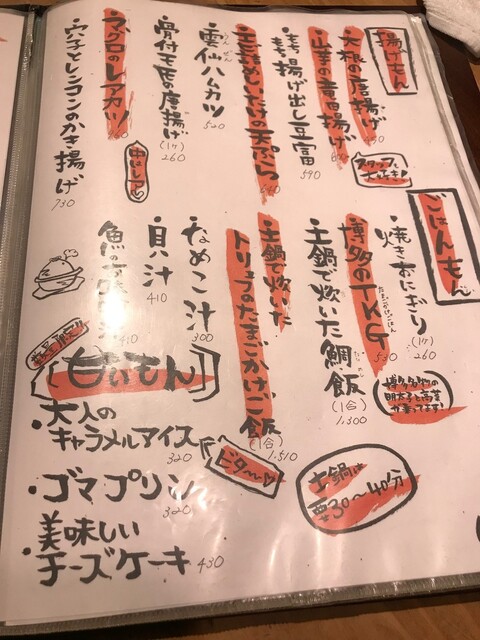 揚げもん
・大根の唐揚げ
・山芋の竜田揚げ
スタッフも大好き!
・もちもち揚げ出し豆富
590
・玉詰めしいたけの天ぷら
640
・雲仙ハムカツ
520
・骨付モモの唐揚げ
(1ケ)
260
・マグロのレアカツ
中はレアっ
・穴子とレンコンのかき揚げ
730
ごはんもん
・焼きおにぎり
(1ケ)
260
・博多のTKG
たまごかけごはん
530
博多名物の
明太子と高菜
が乗ってます!
・土鍋で炊いた鯛飯
(1合)
1,300
・土鍋で炊いた
トリュフのたまごかけご飯
(1合)
1,510
土鍋は
要30〜40分
・なめこ汁
300
・貝汁
410
410
甘いもん
・大人の
キャラメルアイス
320
ビタ〜っ
・ゴマプリン
320
・美味しい
チーズケーキ
430